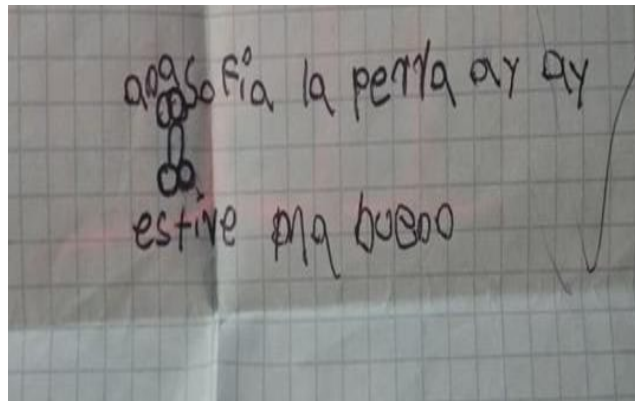 ana Sofia la perra ay ay
estive ma bueno